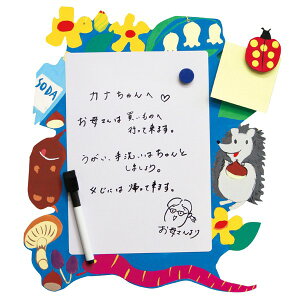 SODA
カナちゃんへ♡
お母さんは買いものへ
行って来ます。
うがい、手洗いはちゃんと
しましょう。
夕方には帰って来ます。
お母さんより